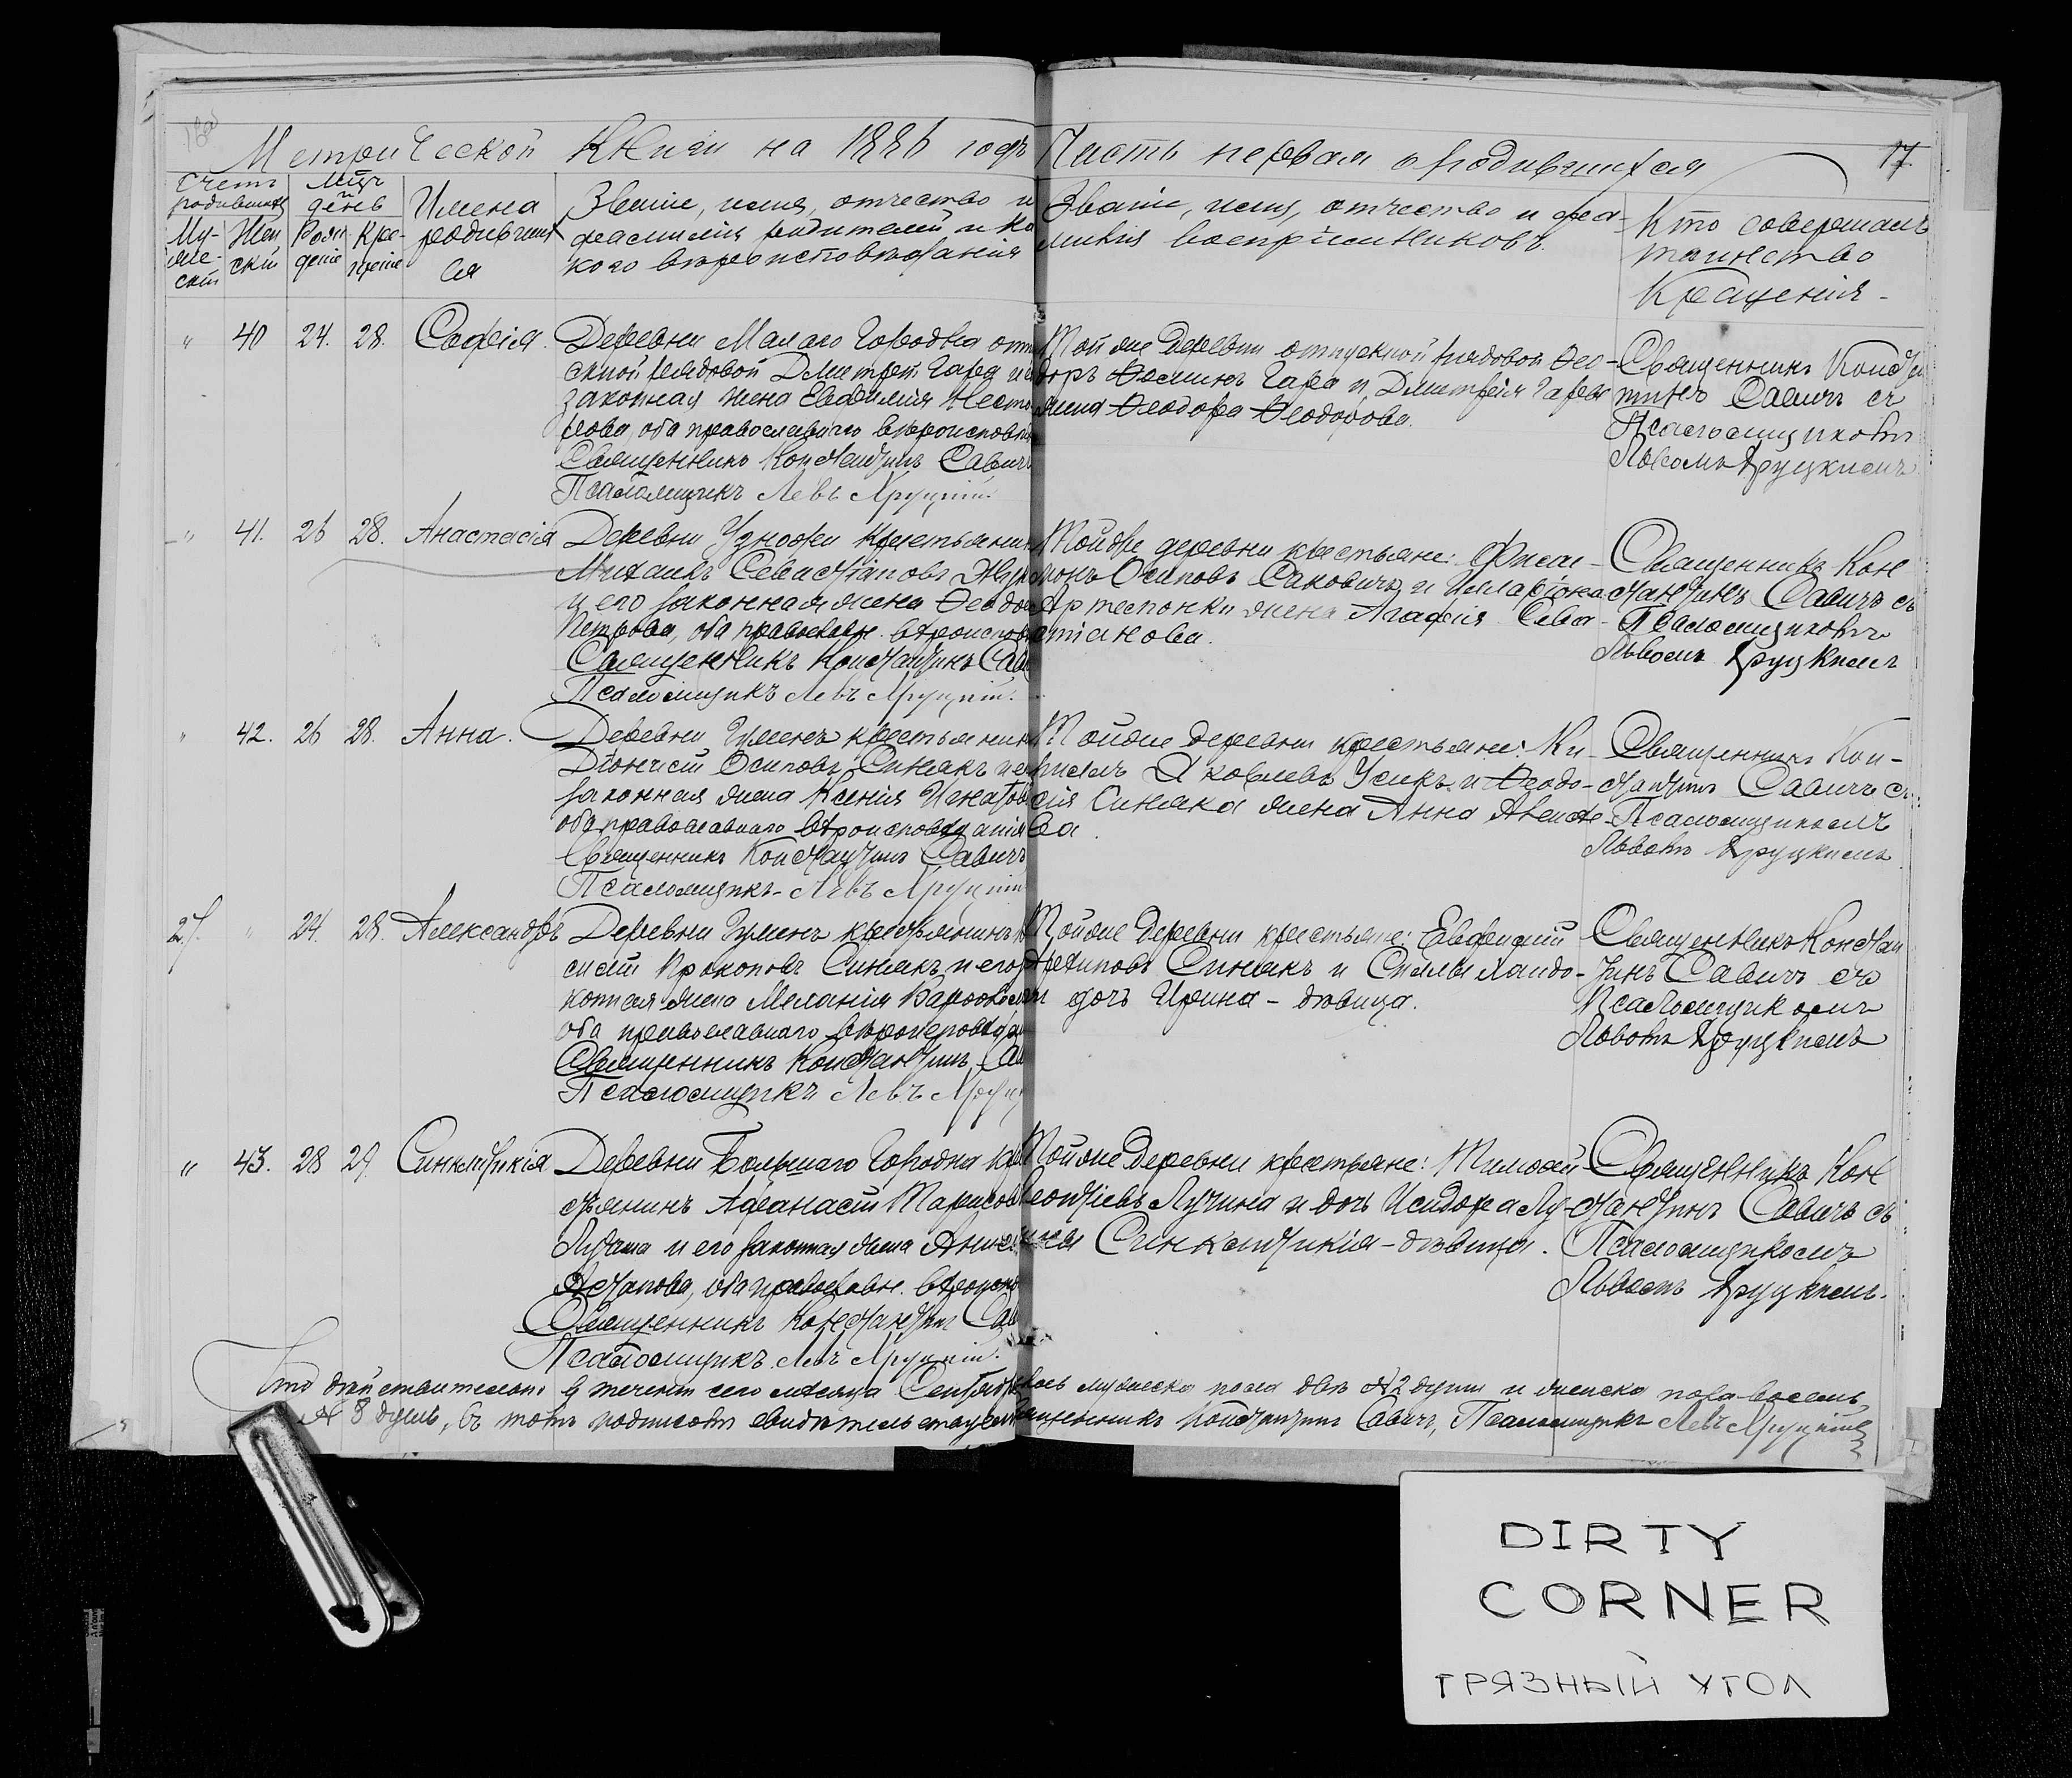 Метрической Книги на 1886 годъ Часть первая о родившихся 17.
Счетъ родившихся
Мѣцъ и день
Имена родившихся
Звание, имя, отчество и фамилия родителей и какого вѣроисповѣдания
Звание, имя, отчество и фамилия восприемниковъ.
Кто совершалъ таинство Крещения
Мужеский Женский Рождение Крещение
" 40 24. 28. София.
Деревни Малаго Городна
скной рядовой Дмитрий Гара и
законная жена Евфимия Несто
рова, оба православнаго вѣроисповѣ
Священникъ Константинъ Савичъ
Псаломщикъ Левъ Хруцкий.
Той же деревни отпускной рядовой Ѳео-
доръ Ѳоминъ Гара и Дмитрия Гары
жена Ѳеодора Ѳеодорова.
Священникъ Конста
тинъ Савичъ съ
Псаломщикомъ
Львомъ Хруцкимъ
" 41. 26 28. Анастасия
Деревни Узножи крестьянинъ
Михаилъ Севастиановъ
и его законная жена Ѳеодо
Петрова, оба православн. вѣроиспов
Священникъ Константинъ Сав
Псаломщикъ Левъ Хруцкий.
Тойже деревни крестьяне: Фили-
монъ Осиповъ Саковичъ и Иллариона
жена Агафия Сева-
стианова.
Священникъ Кон
стантинъ Савичъ съ
Псаломщикомъ
Львомъ Хруцкимъ
" 42. 26 28. Анна.
Деревни Гуменъ крестьянинъ
Дионисий Осиповъ Синякъ и его
законная жена Ксения Игнатов
оба православнаго вѣроисповѣдания
Священникъ Константинъ Савичъ
Псаломщикъ Левъ Хруцкий
Тойже деревни крестьяне: Ки-
Яковлевъ Усикъ и Ѳеодо-
сия Синяка жена Анна
ва.
Священникъ Кон-
стантинъ Савичъ съ
Псаломщикомъ
Львомъ Хруцкимъ
27. " 24. 28. Александръ
Деревни Гуменъ крестьянинъ
Прокоповъ Синякъ и его
конная жена Мелания
оба православнаго вѣроисповѣдан
Священникъ Константинъ Са
Псаломщикъ Левъ Хруц
Тойже деревни крестьяне: Евфимий
Архиповъ Синякъ и
дочь Ирина - дѣвица.
Священникъ Констан
тинъ Савичъ съ
Псаломщикомъ
Львомъ Хруцкимъ
" 43. 28 29. Синклитикия
Деревни Большаго Городна кре
стьянинъ Афанасий Тарасов
и его законная жена
Астапова, оба православн. вѣроиспов
Священникъ Константинъ Сав
Псаломщикъ Левъ Хруцкий.
Тойже деревни крестьяне: Тимофей
Леонтиевъ Лучина и дочь Исидора Лу-
чины Синклитикия - дѣвица.
Священникъ Кон
стантинъ Савичъ съ
Псаломщикомъ
Львомъ Хруцкимъ.
Что действительно въ течении сего мѣсяца Сентября
лось мужеска пола двѣ № 2 души и женска пола восемь,
№ 8 душъ, въ томъ подписомъ свидѣтельствуемъ Священникъ Константинъ Савичъ, Псаломщикъ Левъ Хруцкий
DIRTY
CORNER
ГРЯЗНЫЙ УГОЛ